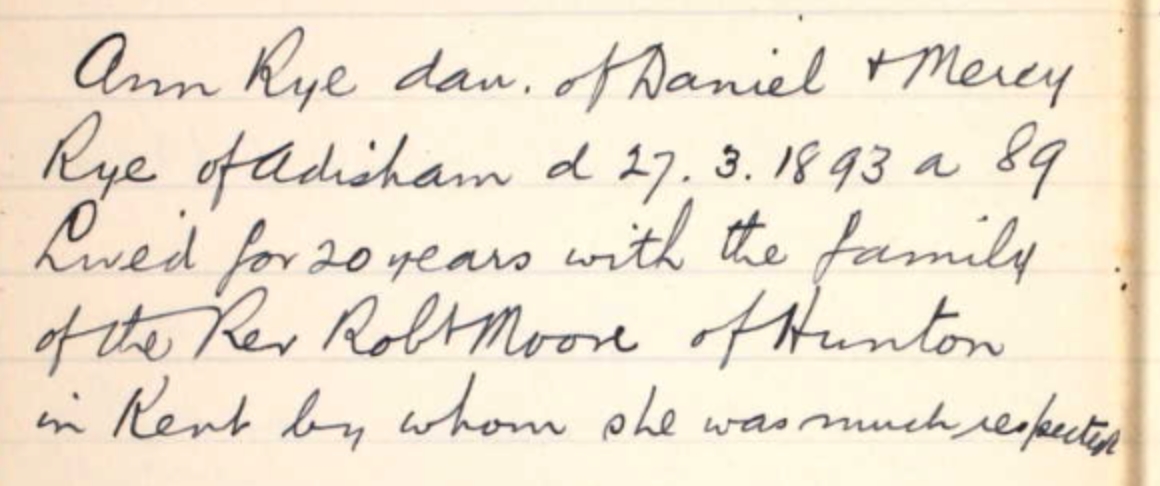 Ann Rye dau. of Daniel + Mercy
Rye of Adisham d 27.3.1893 a 89
Lived for 20 years with the family
of the Rev Robt Moore of Hunton
in Kent by whom she was much respected